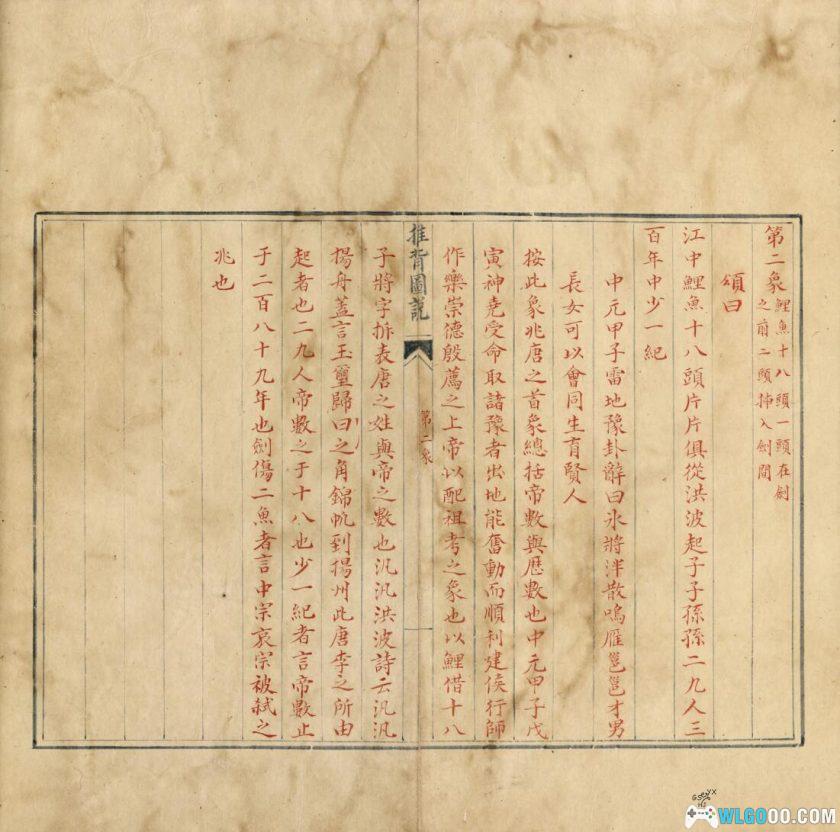 第二象鯉魚十八頭一頭在劍
之前二頭揷入劍間
頌曰
江中鯉魚十八頭片片俱從洪波起子子孫孫二九人三
百年中少一紀
中元甲子雷地豫卦辭曰氷將泮散鳴雁邕邕才男
長女可以會同生育賢人
按此象兆唐之首象總括帝數與歷數也中元甲子戊
寅神堯受命取諸豫者出地能奮動而順利建侯行師
作樂崇德殷薦之上帝以配祖考之象也以鯉借十八
推背圖說
第二象
子將字拆表唐之姓與帝之數也汎汎洪波詩云汎汎
揚舟蓋言玉璽歸日之角錦帆到揚州此唐李之所由
起者也二九人帝數之于十八也少一紀者言帝數止
于二百八十九年也劍傷二魚者言中宗哀宗被弑之
兆也
WLGOOO.COM